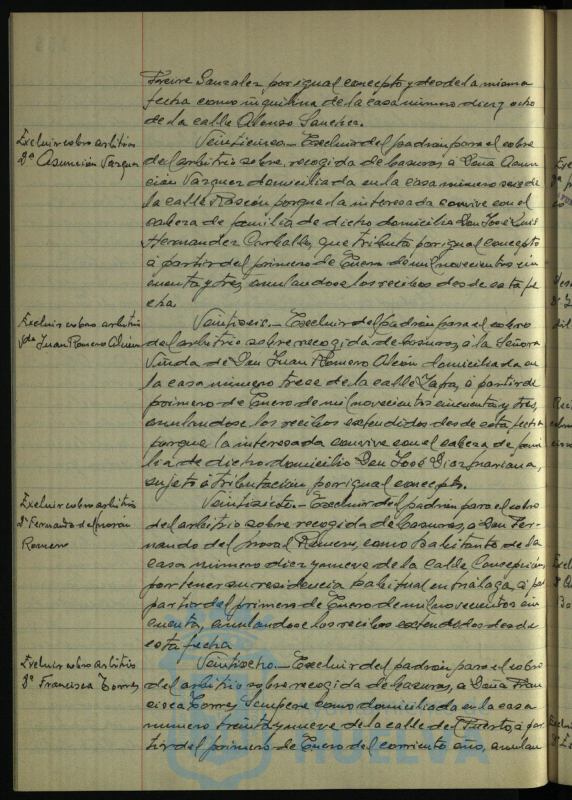 Freire Gonzalez, por igual concepto y desde la misma
fecha como inquilina de la casa número diez y ocho
de la calle Alonso Sanchez.
Excluir cobro arbitrio
Dª Asunción Vazquez
Veinticinco.- Excluir del padrón para el cobro
del arbitrio sobre recogida de basuras, a Doña Asun-
ción Vazquez domiciliada en la casa número seis de
la calle Rascón porque la interesada convive con el
cabeza de familia de dicho domicilio Don José Luis
Hernandez Carballo, que tributa por igual concepto
á partir del primero de Enero de mil novecientos cin
cuenta y tres, anulandose los recibos desde esta fe
cha.
Excluir cobro arbitrio
Vda Juan Romero Alcón
Veintiseis.- Excluir del padrón para el cobro
del arbitrio sobre recogida de basuras, á la Señora
Viuda de Don Juan Romero Alcón domiciliada en
la casa número trece de la calle Zafra, á partir de
primero de Enero de mil novecientos cincuenta y tres,
anulandose los recibos extendidos desde esta fecha
porque la interesada convive con el cabeza de fami
lia de dicho domicilio Don José Diaz Mariana,
sujeto á tributación por igual concepto.
Excluir cobro arbitrio
Dº Fernando del Moral
Romero
Veintisiete.- Excluir del padrón para el cobro
del arbitrio sobre recogida de basuras, a Don Fer-
nando del Moral Romero, como habitante de la
casa número diez y nueve de la calle Concepción,
por tener su residencia habitual en Málaga, á
partir del primero de Enero de mil novecientos cin
cuenta, anulandose los recibos extendidos desde
esta fecha
Excluir cobro arbitrio
Dª Francisca Torres
Veintiocho.- Excluir del padrón para el cobro
del arbitrio sobre recogida de basuras, a Doña Fran
cisca Torres Sempere como domiciliada en la casa
número treinta y nueve de la calle del Puerto, á par
tir del primero de Enero del corriente año, anulan
HUELVA